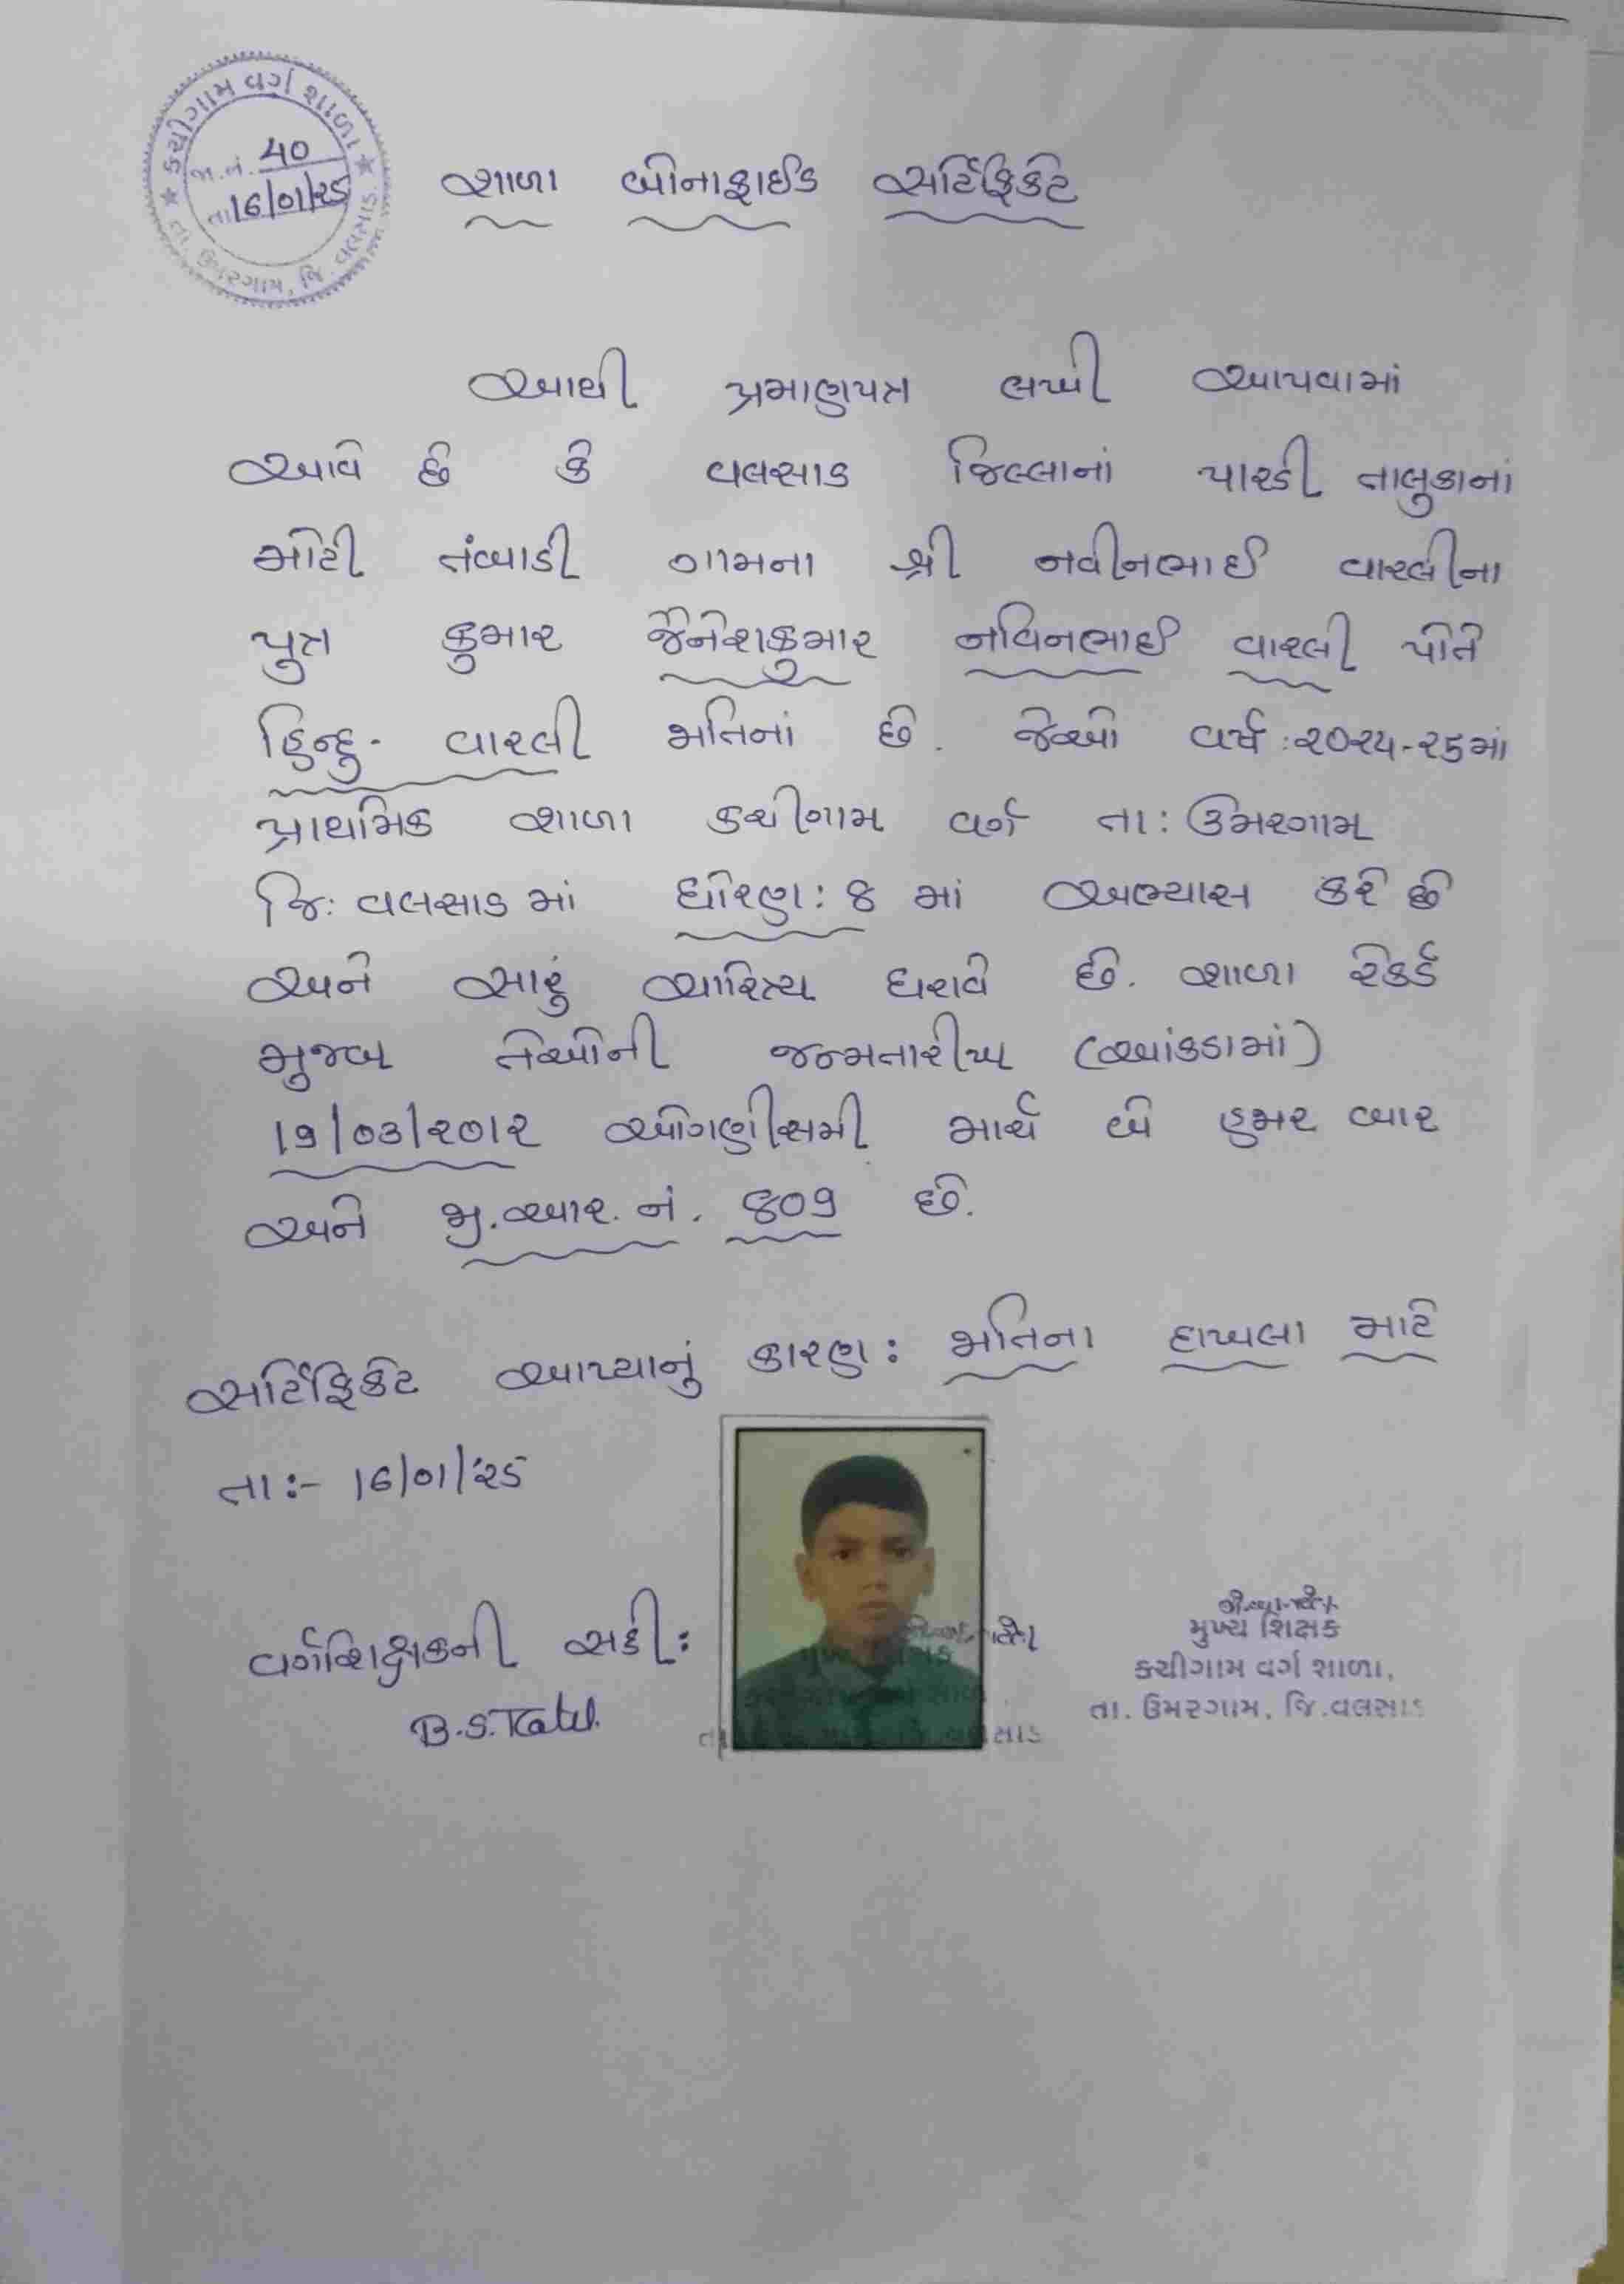 કચીગામ વર્ગ શાળા
જા.નં. 40
તા.16/01/25
તા. ઉમરગામ, જિ. વલસાડ
શાળા બોનાફાઈડ સર્ટિફિકેટ
આથી પ્રમાણપત્ર લખી આપવામાં
આવે છે કે વલસાડ જિલ્લાનાં પારડી તાલુકાનાં
મોટી તંબાડી ગામના શ્રી નવીનભાઈ વારલીના
પુત્ર કુમાર જૈનેશકુમાર નવિનભાઈ વારલી પોતે
હિન્દુ - વારલી જાતિનાં છે. જેઓ વર્ષ : ૨૦૨૫-૨૬માં
પ્રાથમિક શાળા કચીગામ વર્ગ તા: ઉમરગામ
જિ: વલસાડ માં ધોરણ: ૪ માં અભ્યાસ કરે છે
અને સારું ચારિત્ર્ય ધરાવે છે. શાળા રેકર્ડ
મુજબ તેઓની જન્મતારીખ (આંકડામાં)
19/૦૩/૨૦૧૨ ઓગણીસમી માર્ચ બે હજાર બાર
અને જી.આર. નં. ૪૦૭ છે.
સર્ટિફિકેટ આપ્યાનું કારણ: જાતિના દાખલા માટે
તા:- 16/01/25
વર્ગશિક્ષકની સહી:
B.S.Patel.
મુખ્ય શિક્ષક
કચીગામ વર્ગ શાળા,
તા. ઉમરગામ, જિ.વલસાડ